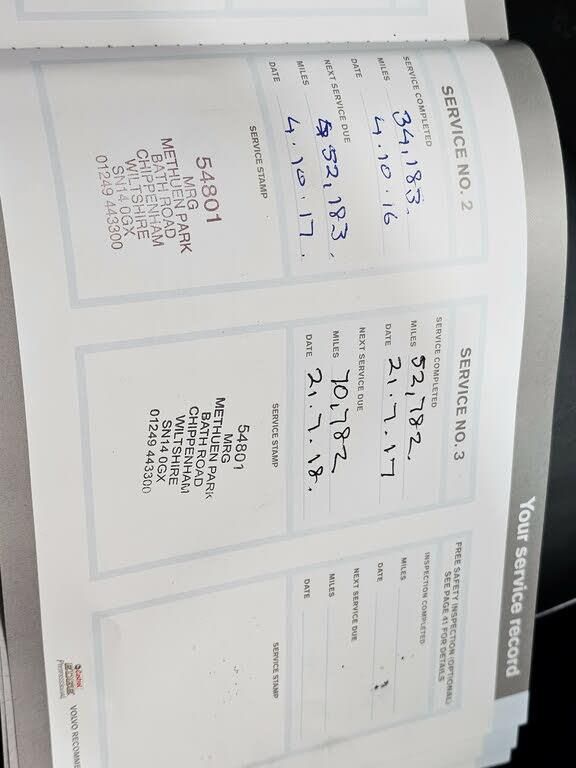 Your service record
SERVICE NO. 2
SERVICE COMPLETED
MILES 34,183.
DATE 4.10.16
NEXT SERVICE DUE
MILES 52,183.
DATE 4.10.17.
SERVICE STAMP
54801
MRG
METHUEN PARK
BATH ROAD
CHIPPENHAM
WILTSHIRE
SN14 0GX
01249 443300
SERVICE NO. 3
SERVICE COMPLETED
MILES 52,782.
DATE 21.7.17
NEXT SERVICE DUE
MILES 70,782
DATE 21.7.18.
SERVICE STAMP
54801
MRG
METHUEN PARK
BATH ROAD
CHIPPENHAM
WILTSHIRE
SN14 0GX
01249 443300
FREE SAFETY INSPECTION (OPTIONAL)
SEE PAGE 41 FOR DETAILS
INSPECTION COMPLETED
MILES
DATE
NEXT SERVICE DUE
MILES
DATE
SERVICE STAMP
Castrol
EDGE
PROFESSIONAL
VOLVO RECOMME